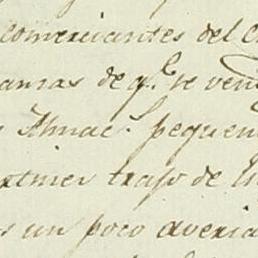 comerciantes del C
amas de q.e se ven
Almac.s pequen
rtmer traso de
s un poco averia